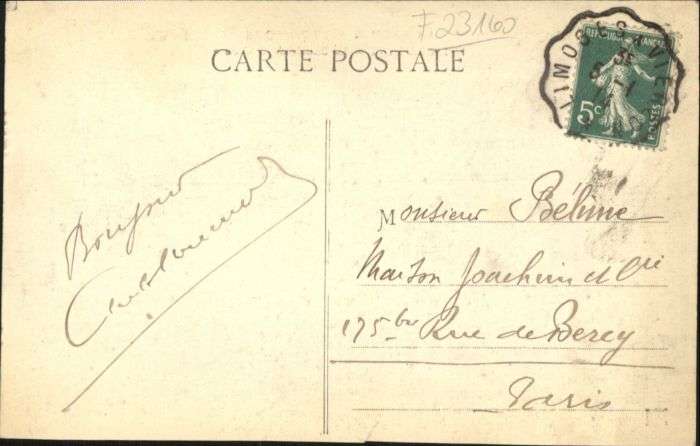 F.23160
CARTE POSTALE
LIMOGES
REPUBLIQUE FRANCAISE
5c
POSTES
Bonjour
Monsieur Béhine
Maison Joachim et Cie
175 bis Rue de Bercy
Paris